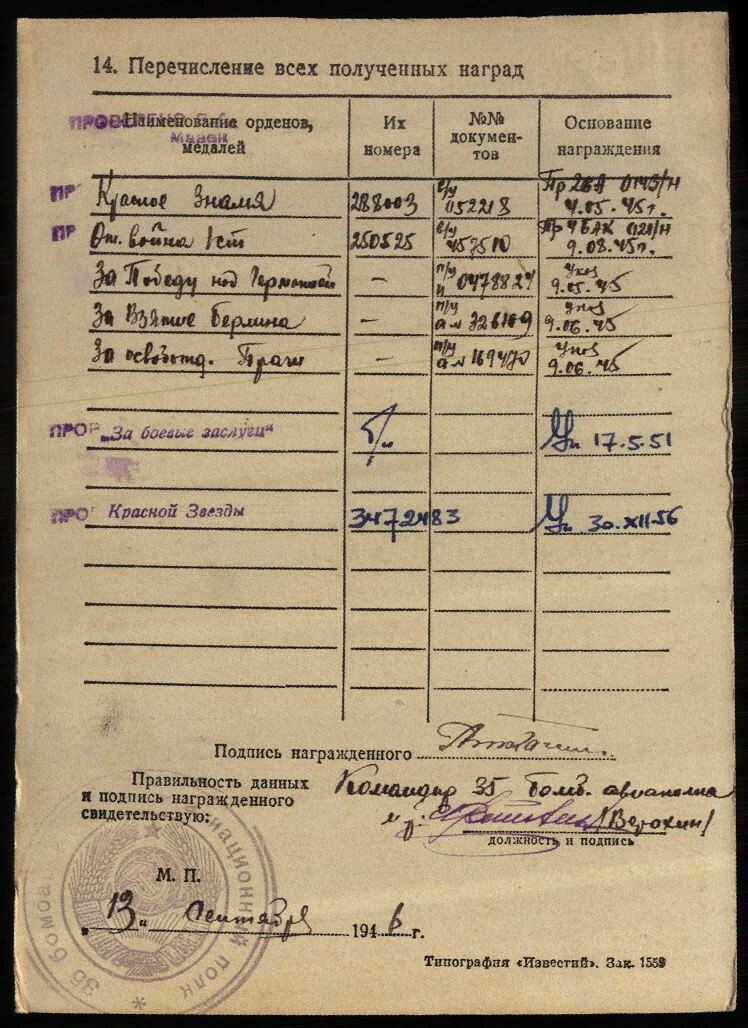 14. Перечисление всех полученных наград
Наименование орденов, медалей
Их номера
№№ документов
Основание награждения
ПР Красное Знамя 288003 с/у 052218 Пр 2ВА 0143/н 4.05.45г.
ПР От. война 1 ст 250525 с/у 457510 9.08.45г.
За Победу над Германией — п/у 0478827 Указ 9.05.45
За Взятие Берлина — п/у 326109 Указ 9.06.45
За освобожд. Праги — п/у 169470 Указ 9.06.45
ПРОВ „За боевые заслуги“ б/н Ук 17.5.51
ПРОВ Красной Звезды 3472483 Ук 30.XII.56
Подпись награжденного
Правильность данных
и подпись награжденного
свидетельствую:
Командир 35 бомб. авиаполка
/Верохин/
должность и подпись
М. П.
„13“ Сентября 1946 г.
35 бомбо авиационный полк
Типография «Известий». Зак. 1559